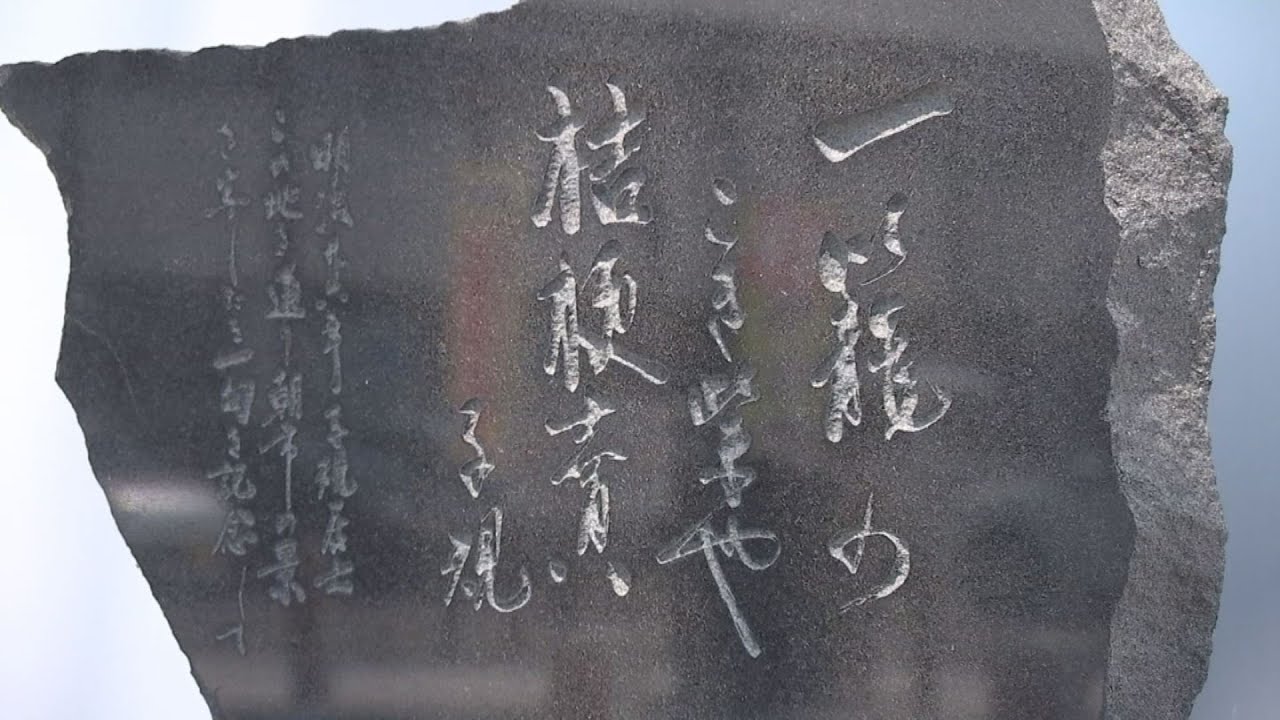 一籠の
こき紫や
桔梗売
子規
明治廿六年子規居士
この地を通り朝市の景
を写したる一句を記念して